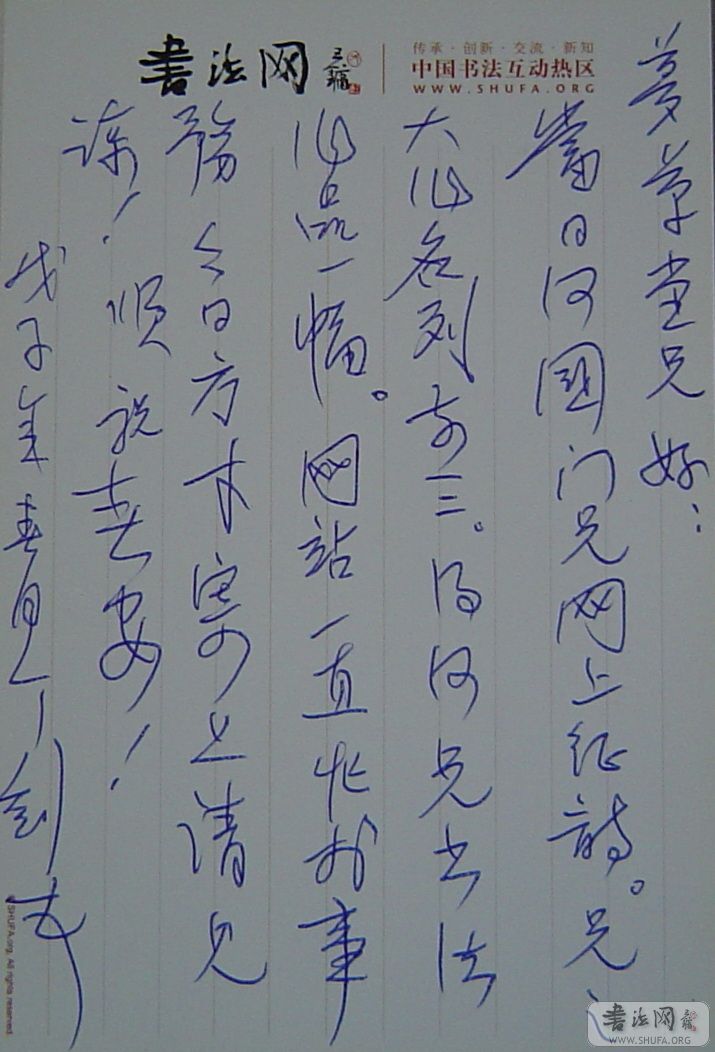 書法网
传承·创新·交流·新知
中国书法互动热区
WWW.SHUFA.ORG
草堂兄好：
當日河國门兄网上征詩。兄
大作名列前三。得河兄书法
作品一幅。网站一直忙於事
務 今日方才寄上请见
谅！顺祝春安！
戊子年春月
©SHUFA.org. All rights reserved.
書法网
WWW.SHUFA.ORG